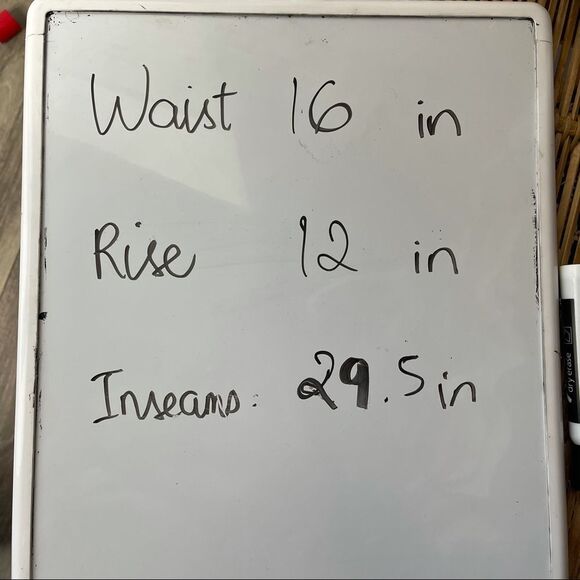 Waist 16 in
Rise 12 in
Inseams: 29.5 in
dry erase